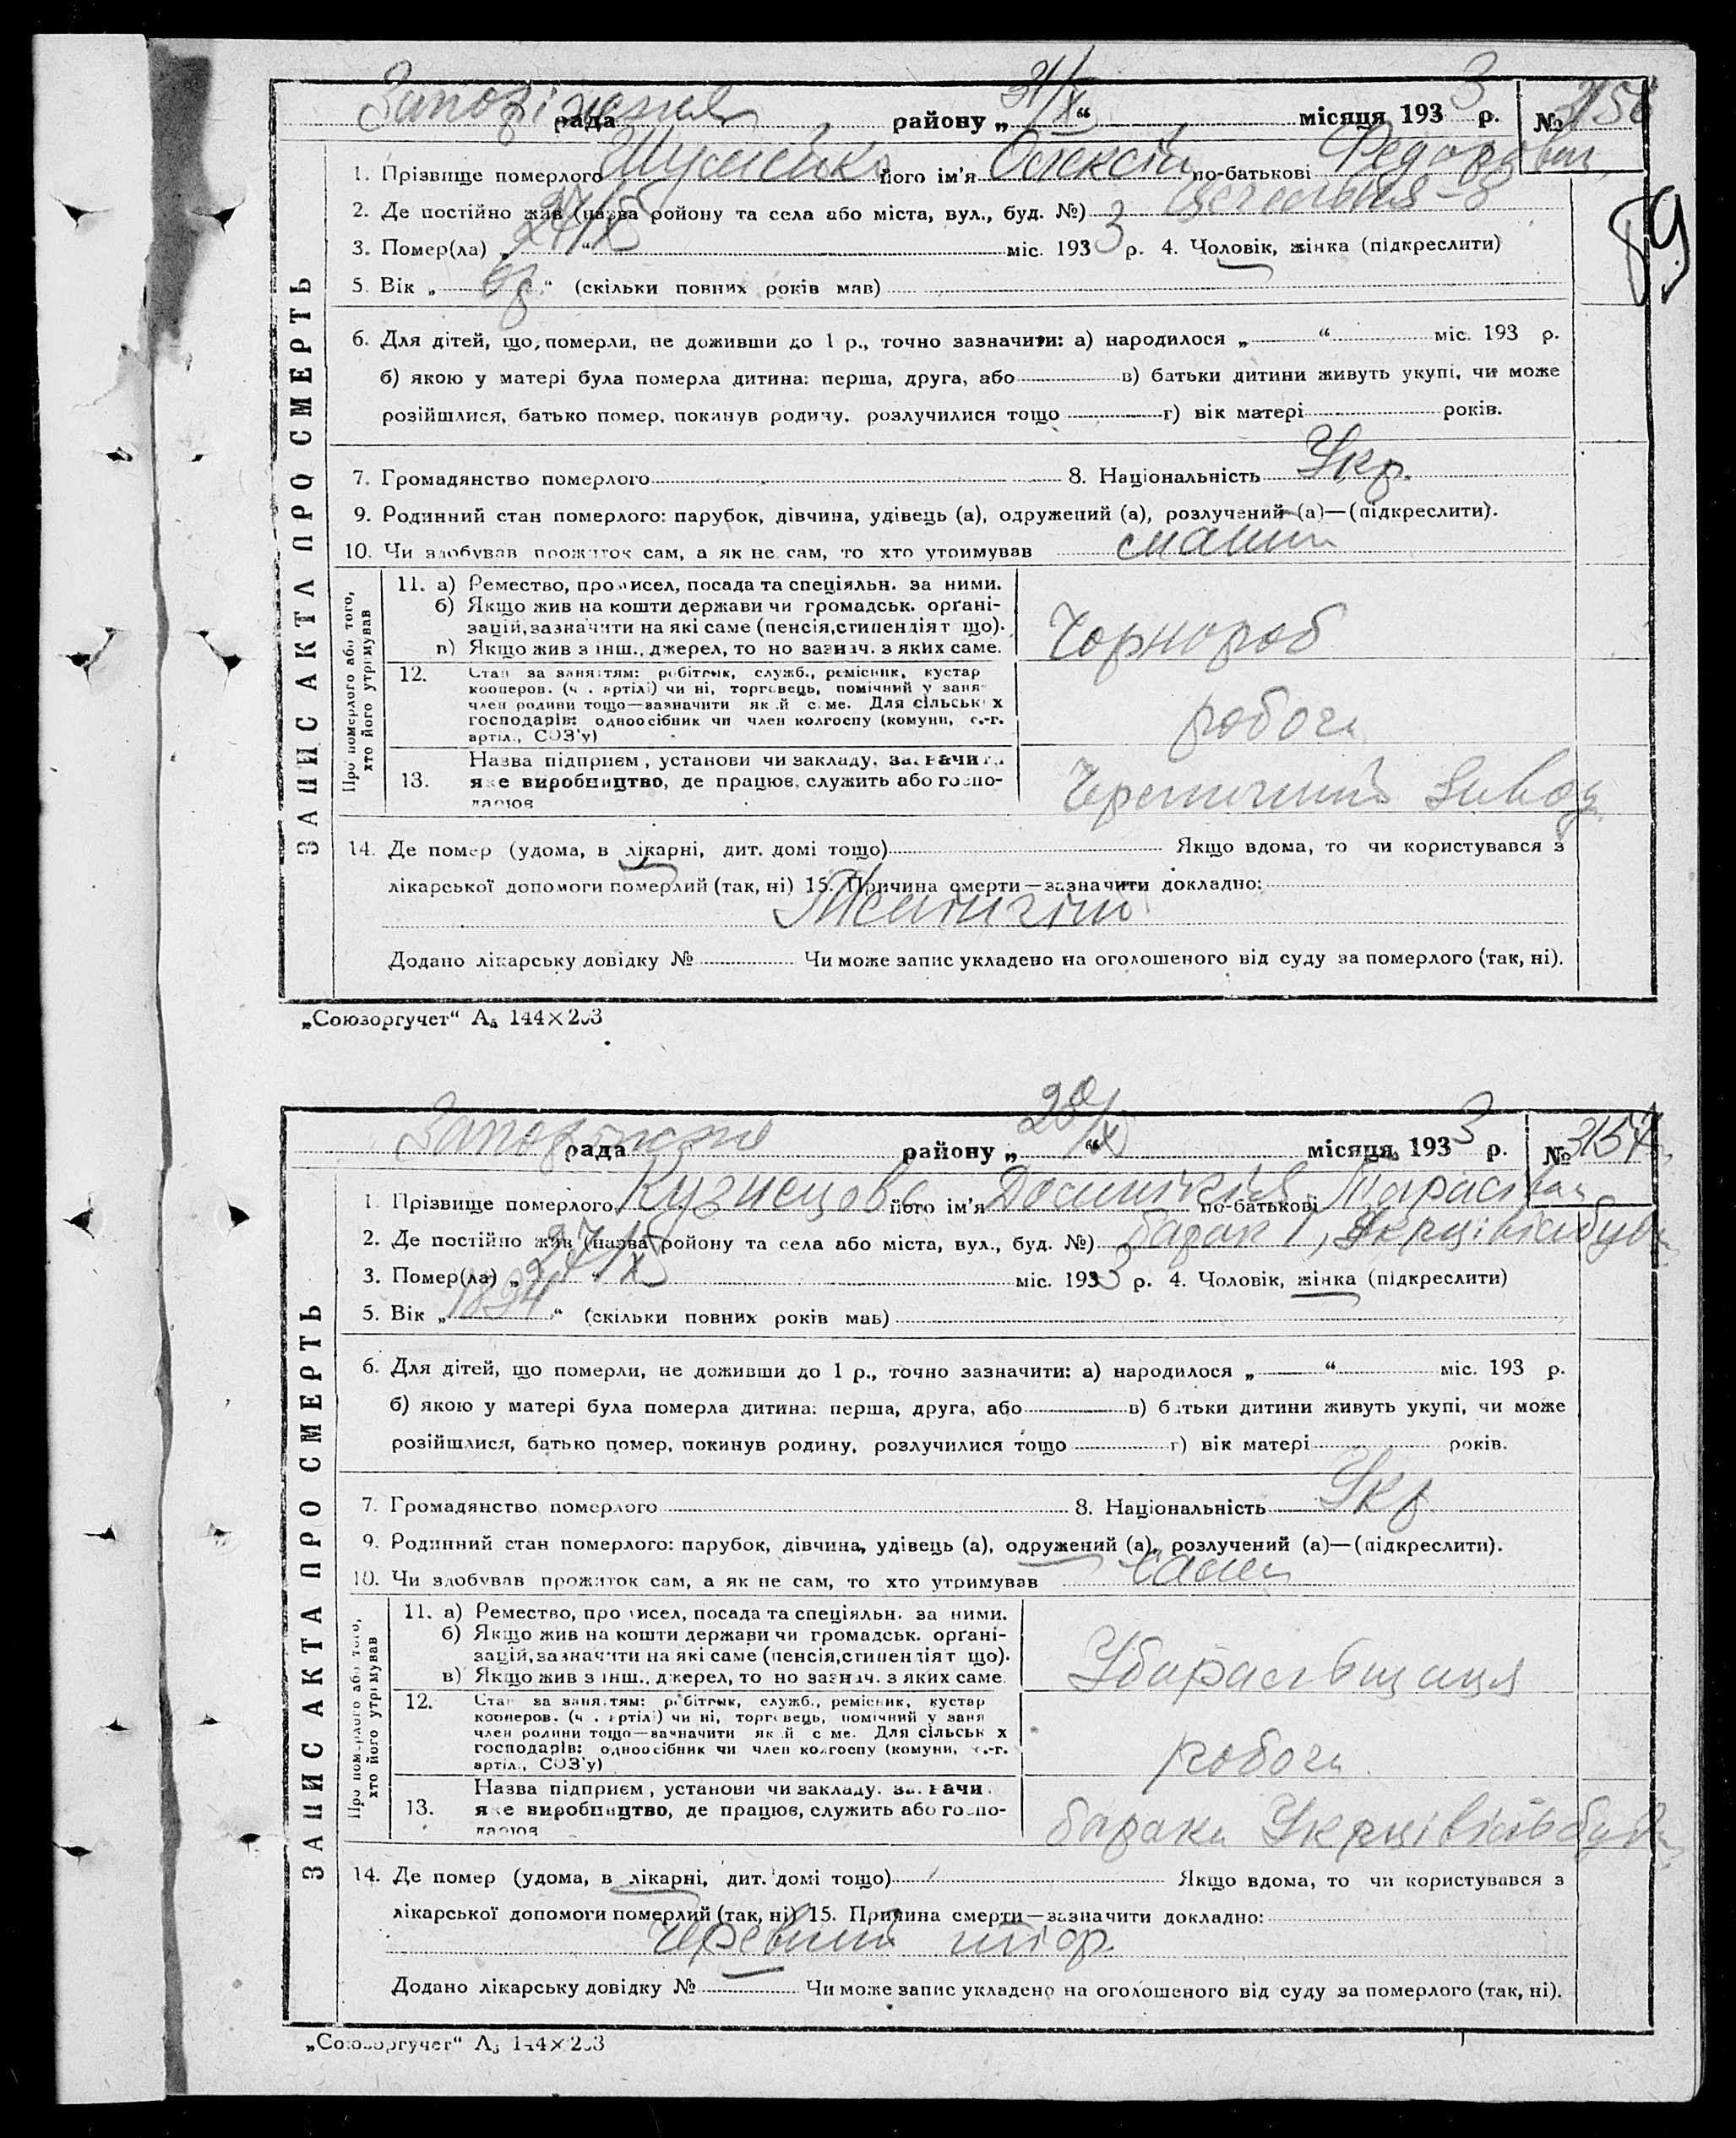 31/X 3
рада району „ “ місяця 193 р. №
89
ЗАПИС АКТА ПРО СМЕРТЬ
1. Прізвище померлого його ім'я Олексій по-батькові Федорович
2. Де постійно жив (назва ройону та села або міста, вул., буд. №)
3. Помер(ла) „ 27/X “ міс. 193 3 р. 4. Чоловік, жінка (підкреслити)
5. Вік „ “ (скільки повних років мав)
6. Для дітей, що померли, не доживши до 1 р., точно зазначити: а) народилося „ “ міс. 193 р.
б) якою у матері була померла дитина: перша, друга, або в) батьки дитини живуть укупі, чи може
розійшлися, батько помер, покинув родину, розлучилися тощо г) вік матері років.
7. Громадянство померлого 8. Національність Укр.
9. Родинний стан померлого: парубок, дівчина, удівець (а), одружений (а), розлучений (а)—(підкреслити).
10. Чи здобував прожиток сам, а як не сам, то хто утримував
Про померлого або того,
хто його утримував
11. а) Ремество, промисел, посада та спеціяльн. за ними.
б) Якщо жив на кошти держави чи громадськ. орґані-
зацій, зазначити на які саме (пенсія, стипендія т що).
в) Якщо жив з інш., джерел, то но зазнач. з яких саме.
Чорнороб
12. Стан за заняттям: робітник, служб., ремісник, кустар
кооперов. (ч . артілі) чи ні, торговець, помічний у заня
член родини тощо—зазначити як й с ме. Для сільськ х
господарів: одноосібник чи член колгоспу (комуни, с.-г.
артіл., СОЗ'у)
робоч
13. Назва підприєм , установи чи закладу, зазначити
яке виробництво, де працює, служить або госпо-
дарює
Черепичний завод
14. Де помер (удома, в лікарні, дит. домі тощо) Якщо вдома, то чи користувався з
лікарської допомоги померлий (так, ні) 15. Причина смерти—зазначити докладно:
Менінгіт
Додано лікарську довідку № Чи може запис укладено на оголошеного від суду за померлого (так, ні).
„Союзоргучет“ А₅ 144×203
3
рада району „ “ місяця 193 р. № 3157
ЗАПИС АКТА ПРО СМЕРТЬ
1. Прізвище померлого Кузнецова його ім'я по-батькові Тарасівн
2. Де постійно жив (назва ройону та села або міста, вул., буд. №) барак 1,
3. Помер(ла) „ 27/X “ міс. 193 3 р. 4. Чоловік, жінка (підкреслити)
5. Вік „ 1894 “ (скільки повних років мав)
6. Для дітей, що померли, не доживши до 1 р., точно зазначити: а) народилося „ “ міс. 193 р.
б) якою у матері була померла дитина: перша, друга, або в) батьки дитини живуть укупі, чи може
розійшлися, батько помер, покинув родину, розлучилися тощо г) вік матері років.
7. Громадянство померлого 8. Національність Укр
9. Родинний стан померлого: парубок, дівчина, удівець (а), одружений (а), розлучений (а)—(підкреслити).
10. Чи здобував прожиток сам, а як не сам, то хто утримував
Про померлого або того,
хто його утримував
11. а) Ремество, промисел, посада та спеціяльн. за ними.
б) Якщо жив на кошти держави чи громадськ. орґані-
зацій, зазначити на які саме (пенсія, стипендія т що).
в) Якщо жив з інш., джерел, то но зазнач. з яких саме
12. Стан за заняттям: робітник, служб., ремісник, кустар
кооперов. (ч . артілі) чи ні, торговець, помічний у заня
член родини тощо—зазначити як й с ме. Для сільськ х
господарів: одноосібник чи член колгоспу (комуни, с.-г.
артіл., СОЗ'у)
робоч
13. Назва підприєм , установи чи закладу, зазначи
яке виробництво, де працює, служить або госпо-
дарює
бараки
14. Де помер (удома, в лікарні, дит. домі тощо) Якщо вдома, то чи користувався з
лікарської допомоги померлий (так, ні) 15. Причина смерти—зазначити докладно:
Черевний
Додано лікарську довідку № Чи може запис укладено на оголошеного від суду за померлого (так, ні).
„Союзоргучет“ А₅ 144×203